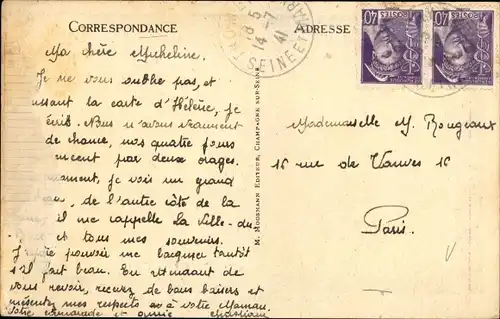 CORRESPONDANCE
ADRESSE
18-5
14-7
41
SEINE ET
40
POSTES
40
Ma chère Micheline.
Je ne vous oublie pas, et
la carte d'Hélène, je
écris. Nous n'avons vraiment
de chance, nos quatre jours
par deux orages.
je vois un grand
de l'autre côté de la
il me rappelle La Ville-du-
et tous mes souvenirs.
pouvoir me baigner tantôt
s'il fait beau. En attendant de
vous revoir, recevez de bons baisers et
présentez mes respects à votre Maman.
Votre camarade et amie Christiane
M. MOOSMANN EDITEUR, CHAMPAGNE-SUR-SEINE
Mademoiselle M. Rougeaux
16 rue de Vanves 16
Paris.